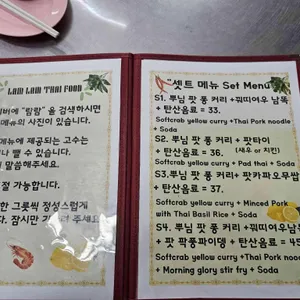 LAM LUM THAI FOOD
버에 "람람" 을 검색하시면
메뉴의 사진이 있습니다.
메뉴에 제공되는 고수는
나 뺄 수 있습니다.
말씀해주세요.
절 가능합니다.
한 그릇씩 정성스럽게
다. 잠시만 주세요
"셋트 메뉴 Set Menu"
S1. 뿌님 팟 퐁 커리 +꿔띠여우 남똑
+ 탄산음료 = 33.
Softcrab yellow curry +Thai Pork noodle
+ Soda
S2. 뿌님 팟 퐁 커리 + 팟타이
+ 탄산음료 = 36. (새우 or 치킨)
Softcrab yellow curry + Pad thai + Soda
S3.뿌님 팟 퐁 커리 + 팟카파오무쌉
+ 탄산음료 = 37.
Softcrab yellow curry + Minced Pork
with Thai Basil Rice + Soda
S4. 뿌님 팟 퐁 커리 + 꿔띠여우남똑
+ 팟 팍퐁파이뎅 + 탄산음료 = 45
Softcrab yellow curry +Thai Pork nood
+ Morning glory stir fry + Soda